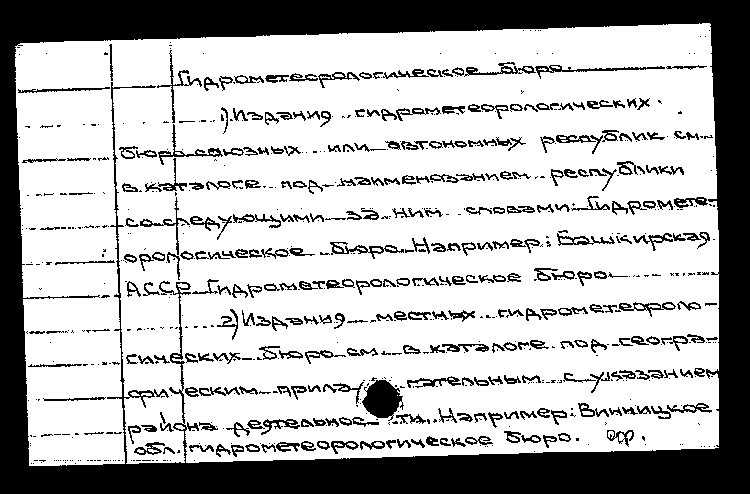 Гидрометеорологическое бюро.
1) Издания гидрометеорологических
бюро союзных или автономных республик см.
в каталоге под наименованием республики
со следующими за ним словами: Гидромете-
орологическое бюро. Например: Башкирская
АССР. Гидрометеорологическое бюро.
2) Издания местных гидрометеороло-
гических бюро см. в каталоге под геогра-
фическим прилагательным с указанием
района деятельности. Например: Винницкое
обл. гидрометеорологическое бюро.